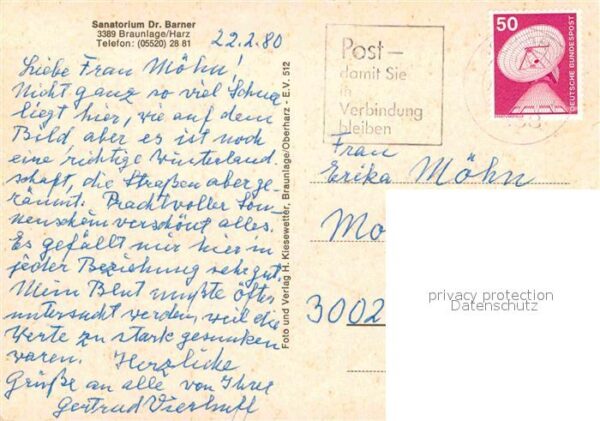 Sanatorium Dr. Barner
3389 Braunlage/Harz
Telefon: (05520) 28 81
22.2.80
Liebe Frau Möhn!
Nicht ganz so viel Schnee
liegt hier, wie auf dem
Bild, aber es ist noch
eine richtige Winterland-
schaft, die Straßen aber ge-
räumt. Prachtvoller Son-
nenschein verschönt alles.
Es gefällt mir hier in
jeder Beziehung sehr gut.
Mein Blut mußte öfter
untersucht werden, weil die
Werte zu stark gesunken
waren. Herzliche
Grüße an alle von Ihrer
Gertrud Vierhuff
Foto und Verlag H. Kiesewetter, Braunlage/Oberharz - E.V. 512
Post –
damit Sie
in
Verbindung
bleiben
50
DEUTSCHE BUNDESPOST
Frau
Erika Möhn
Mo
3002
privacy protection
Datenschutz